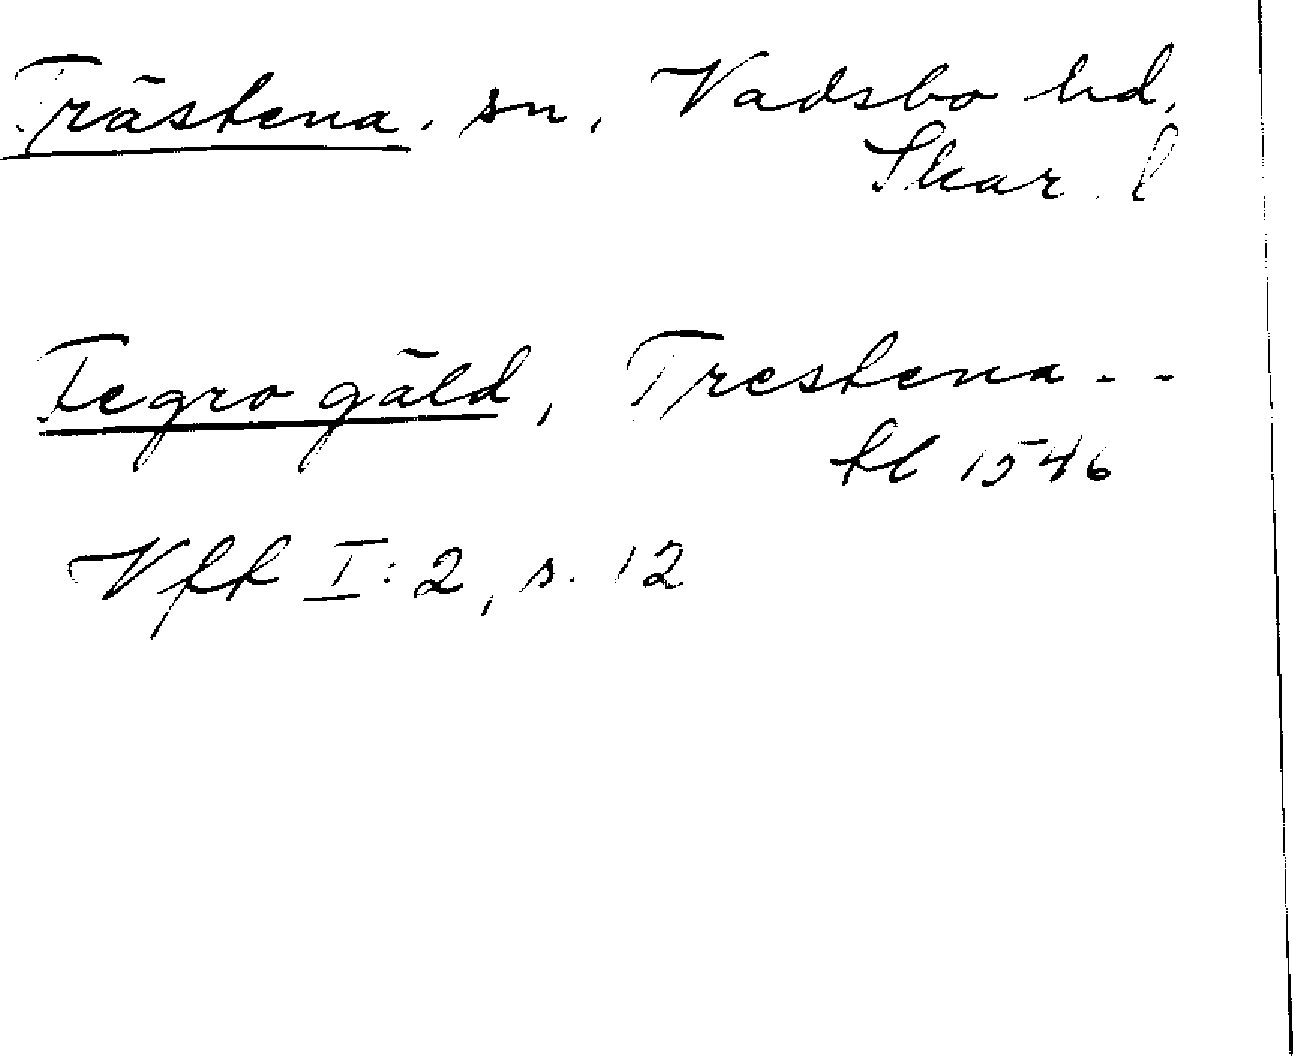 Trästena. sn, Vadsbo hd,
Skar. l
Tegrogäld, Trestena - -
tl 1546
Vfft I:2, s. 12